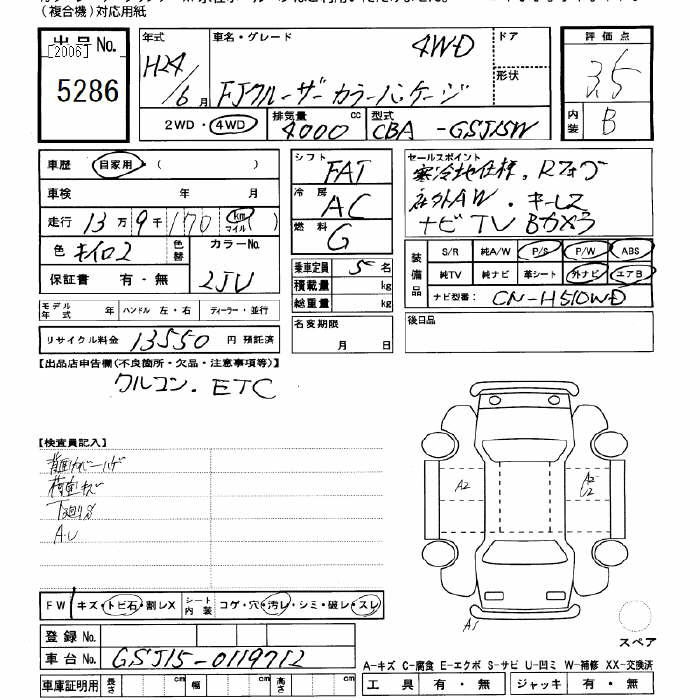 (複合機)対応用紙
出品No.
[2006]
5286
年式
H24/6月
車名・グレード
4WD
FJクルーザー カラーパッケージ
ドア
形状
2WD・4WD
排気量
4000 cc
型式
CBA-GSJ15W
評価点
3.5
内装
B
車歴 自家用・( )
車検 年 月
走行 13万9千170 km マイル( )
色 キイロ2 色替 カラーNo.
保証書 有・無 2JU
モデル年式 年 ハンドル 左・右 ディーラー・並行
リサイクル料金 13550 円 預託済
シフト FAT
冷房 AC
燃料 G
乗車定員 5 名
積載量 kg
総重量 kg
名変期限
月 日
セールスポイント
寒冷地仕様、Rフォグ
社外AW、キーレス
ナビTV Bカメラ
装備品
S/R 純A/W P/S P/W ABS
純TV 純ナビ 革シート 外ナビ エアB
ナビ型番: CN-H510WD
後日品
【出品店申告欄(不良箇所・欠品・注意事項等)】
クルコン、ETC
【検査員記入】
A・U
A2
A2
U2
A1
スペア
FW キズ・トビ石・割レX シート内装 コゲ・穴・汚レ・シミ・破レ・スレ
登録No.
車台No. GSJ15-0119712
車庫証明用 長さ cm 幅 cm 高さ cm
A-キズ C-腐食 E-エクボ S-サビ U-凹ミ W-補修 XX-交換済
工具 有・無 ジャッキ 有・無